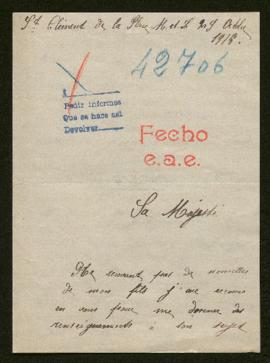 St Clément de la Place M. et L. le 9 Octobre
1918.
42706
A
Pedir informes
Que se hace así
Devolver
Fecho
e.a.e.
Sa Majesté
Ne recevant pas de nouvelles
de mon fils j'ai recours
en vous pour me donner des
renseignements à son sujet